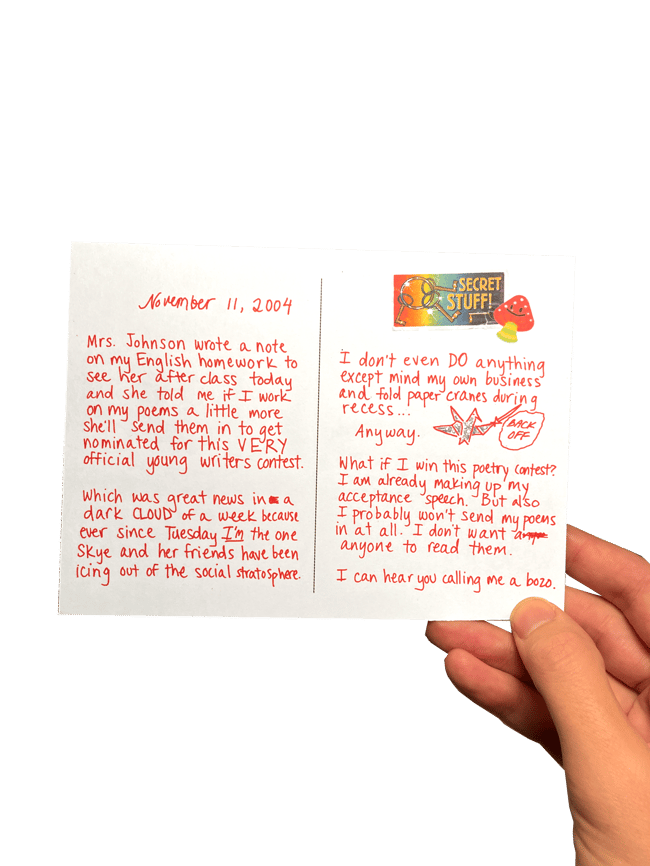 November 11, 2004
Mrs. Johnson wrote a note
on my English homework to
see her after class today
and she told me if I work
on my poems a little more
she'll send them in to get
nominated for this VERY
official young writers contest.
Which was great news in a
dark CLOUD of a week because
ever since Tuesday I'm the one
Skye and her friends have been
icing out of the social stratosphere.
SECRET
STUFF!
I don't even DO anything
except mind my own business
and fold paper cranes during
recess...
Anyway.
BACK
OFF
What if I win this poetry contest?
I am already making up my
acceptance speech. But also
I probably won't send my poems
in at all. I don't want
anyone to read them.
I can hear you calling me a bozo.